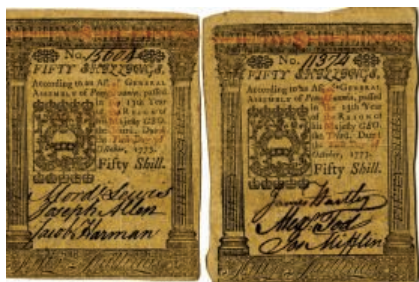 No. 15604
FIFTY SHILLINGS.
According to an Act of GENERAL
ASSEMBLY of Pennsylvania, passed
in the 13th Year
of the REIGN of
his Majesty GEO.
the Third. Dated
the
October, 1773.
Fifty Shill.
Mord Lewis
Joseph Allen
Jacob Harman
No. 11374
FIFTY SHILLINGS.
According to an Act of GENERAL
ASSEMBLY of Pennsylvania, passed
in the 13th Year
of the REIGN of
his Majesty GEO.
the Third. Dated
the
October, 1773.
Fifty Shill.
James Hartley
Alexr. Tod
Jon Mifflin